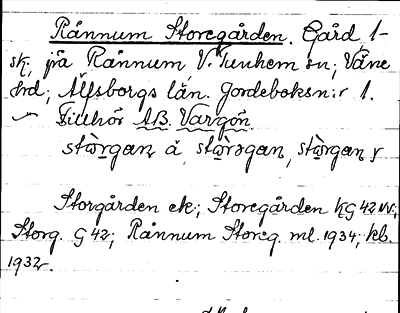 Rånnum Storegården. Gård 1-
sk, på Rånnum V. Tunhem sn; Väne
hd; Älfsborgs län. Jordeboksn:r 1.
Tillhör AB. Vargön.
Storgården ek; Storegården KG 42 NV;
Storg. G 42; Rånnum Storeg. ml. 1934; kb.
1932.